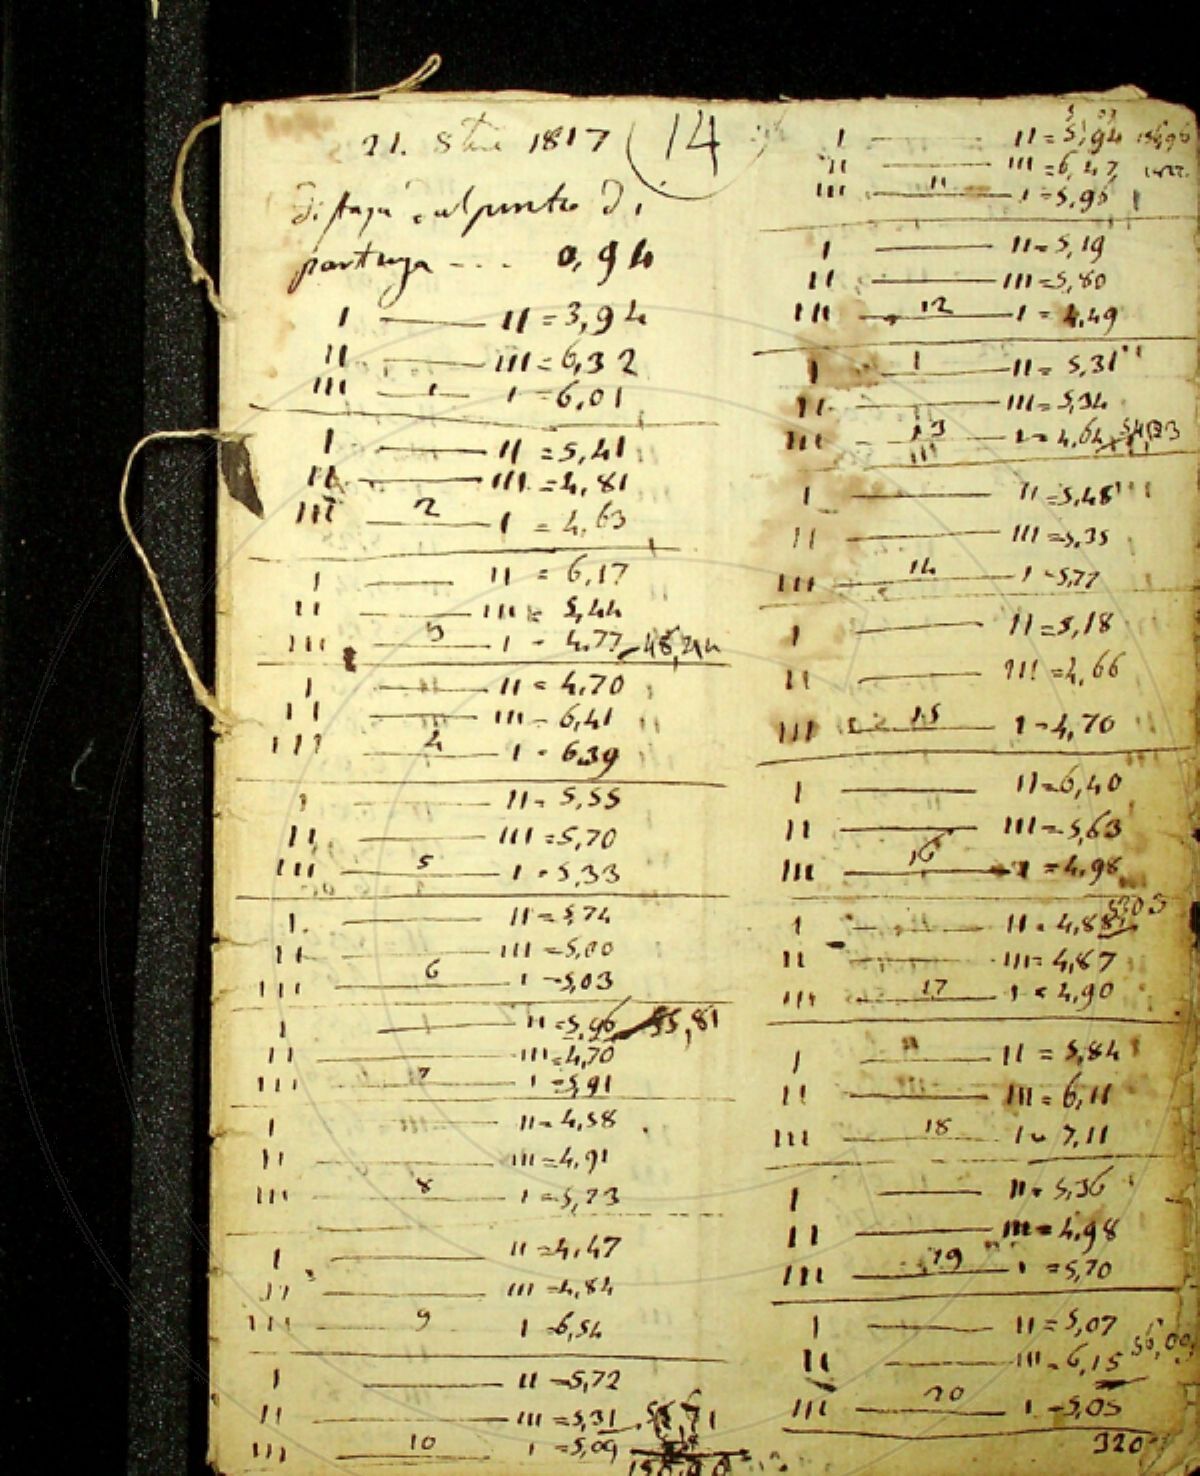 21. 8bre 1817 (14)
punto di
0,94
I — II = 3,94
II — III = 6,32
III — 1 — I = 6,01
I — II = 5,41
II — III = 4,81
III — 2 — I = 4,63
I — II = 6,17
II — III = 5,44
III — 3 — I = 4,77
I — II = 4,70
II — III = 6,41
III — 4 — I = 6,39
I — II = 5,55
II — III = 5,70
III — 5 — I = 5,33
I — II = 5,74
II — III = 5,00
III — 6 — I = 5,03
I — II = 5,96 55,81
II — III = 4,70
III — 7 — I = 5,91
I — II = 4,58
II — III = 4,91
III — 8 — I = 5,23
I — II = 4,47
II — III = 4,84
III — 9 — I = 6,54
I — II = 5,72
II — III = 5,31
III — 10 — I = 5,09
I — II = 5,94
II — III = 6,47
III — 11 — I = 5,96
I — II = 5,19
II — III = 5,80
III — 12 — I = 4,49
I — II = 5,31
II — III = 5,34
III — 13 — I = 4,64
I — II = 5,48
II — III = 5,35
III — 14 — I = 5,77
I — II = 5,18
II — III = 4,66
III — 15 — I = 4,70
I — II = 6,40
II — III = 5,63
III — 16 — I = 4,98
I — II = 4,88
II — III = 4,87
III — 17 — I = 4,90
I — II = 5,84
II — III = 6,11
III — 18 — I = 7,11
I — II = 5,36
II — III = 4,98
III — 19 — I = 5,70
I — II = 5,07
II — III = 6,15
III — 20 — I = 5,05
320